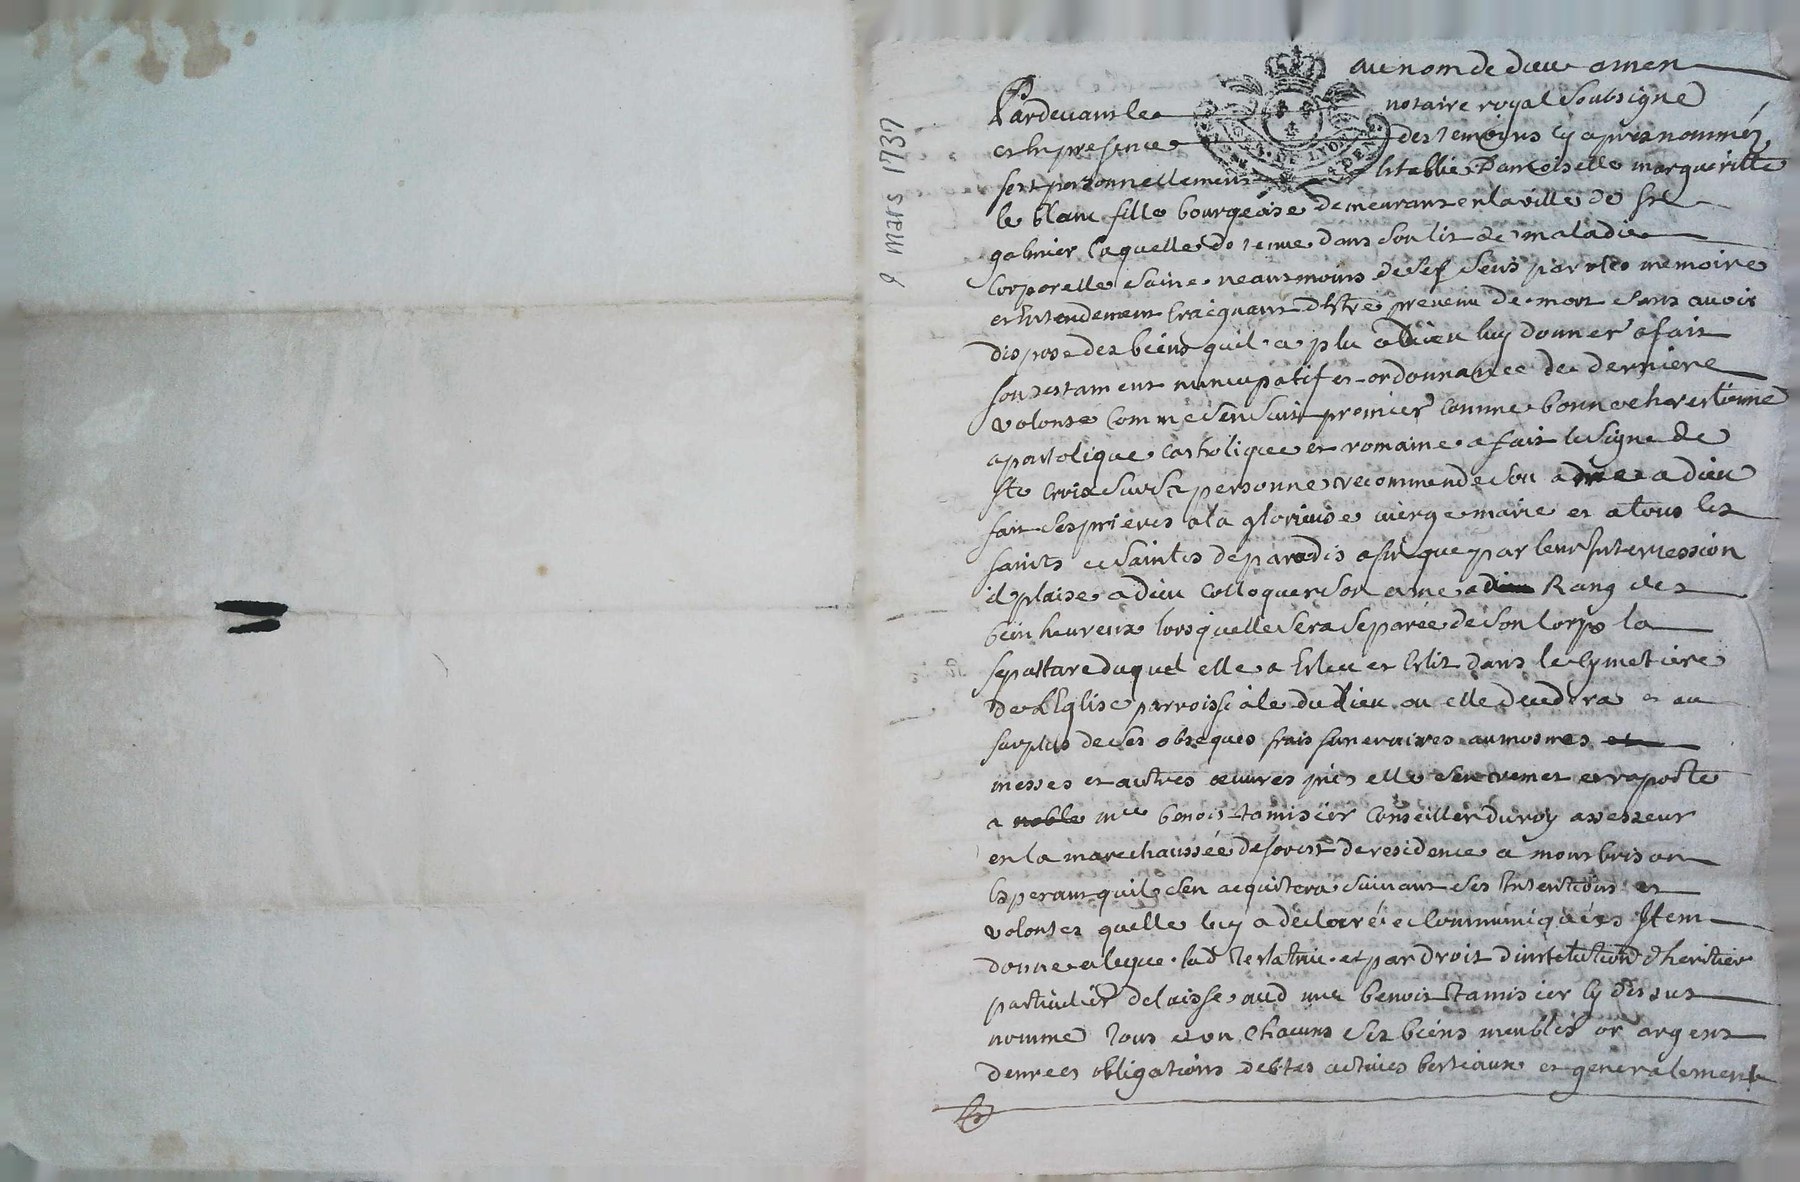 9 mars 1737
au nom de dieu amen
Pardevant le notaire royal soubsigné
et en presence des temoins cy apres nommés
fest personnellement establie Damoiselle margueritte
le blanc fille bourgeoise demeurant en la ville de st
galmier laquelle detenue dans son lit de maladie
corporelle saine neantmoins de ses sens parolle memoire
et entendement craignant destre prevenu de mort sans avoir
disposé des biens quil a plu a Dieu luy donner a fait
son testament nuncupatif et ordonnance de derniere
volonté comme sensuit premier comme bonne chrestienne
apostolique catholique et romaine a fait le signe de
ste croix sur sa personne recommendé son ame a dieu
fait ses prieres a la glorieuse vierge marie et a tous les
saints et saintes de paradis afin que par leur intercession
il plaise a dieu colloquer son ame a Rang des
bein heureux lorsquelle sera separée de son corps la
sepulture duquel elle a Esleu et Eslit dans le cymetiere
de lEglise parroissiale du lieu ou elle decedera et au
surplus de ses obseques frais funeraires aumosnes et
messes et autres œuvres pies elle sen remet et raporte
a noble mre benoit tamisier Conseiller du roy assesseur
en la marechaussée de forest de residence a montbrison
Esperant quil sen acquittera suivant ses Intentions et
volontes quelle luy a declaré et Communiquées Item
donne a legue lad testatrice et par droit dinstitution dheritier
particulier delaisse aud mre benoit tamisier cy dessus
nommé tous et un chacuns ses biens meubles or argent
denrees obligations debtes actives bestiaux et generalement